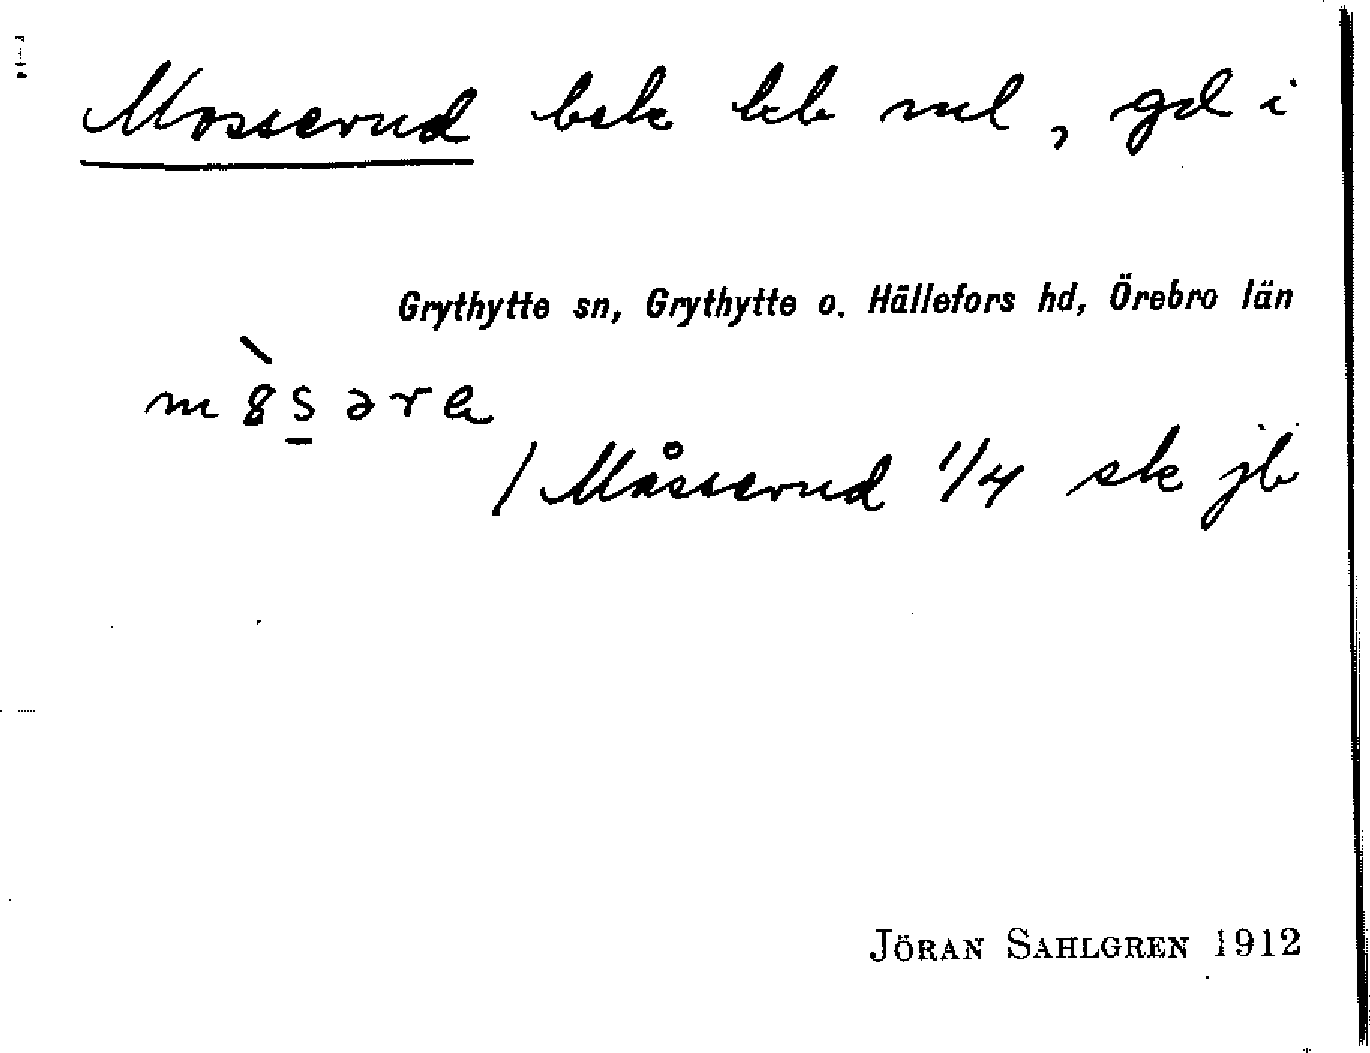 Mosserud bsk kb ml, gd i
Grythytte sn, Grythytte o. Hällefors hd, Örebro län
m8̀s̲əra
/ Måsserud 1/4 sk jb
JÖRAN SAHLGREN 1912